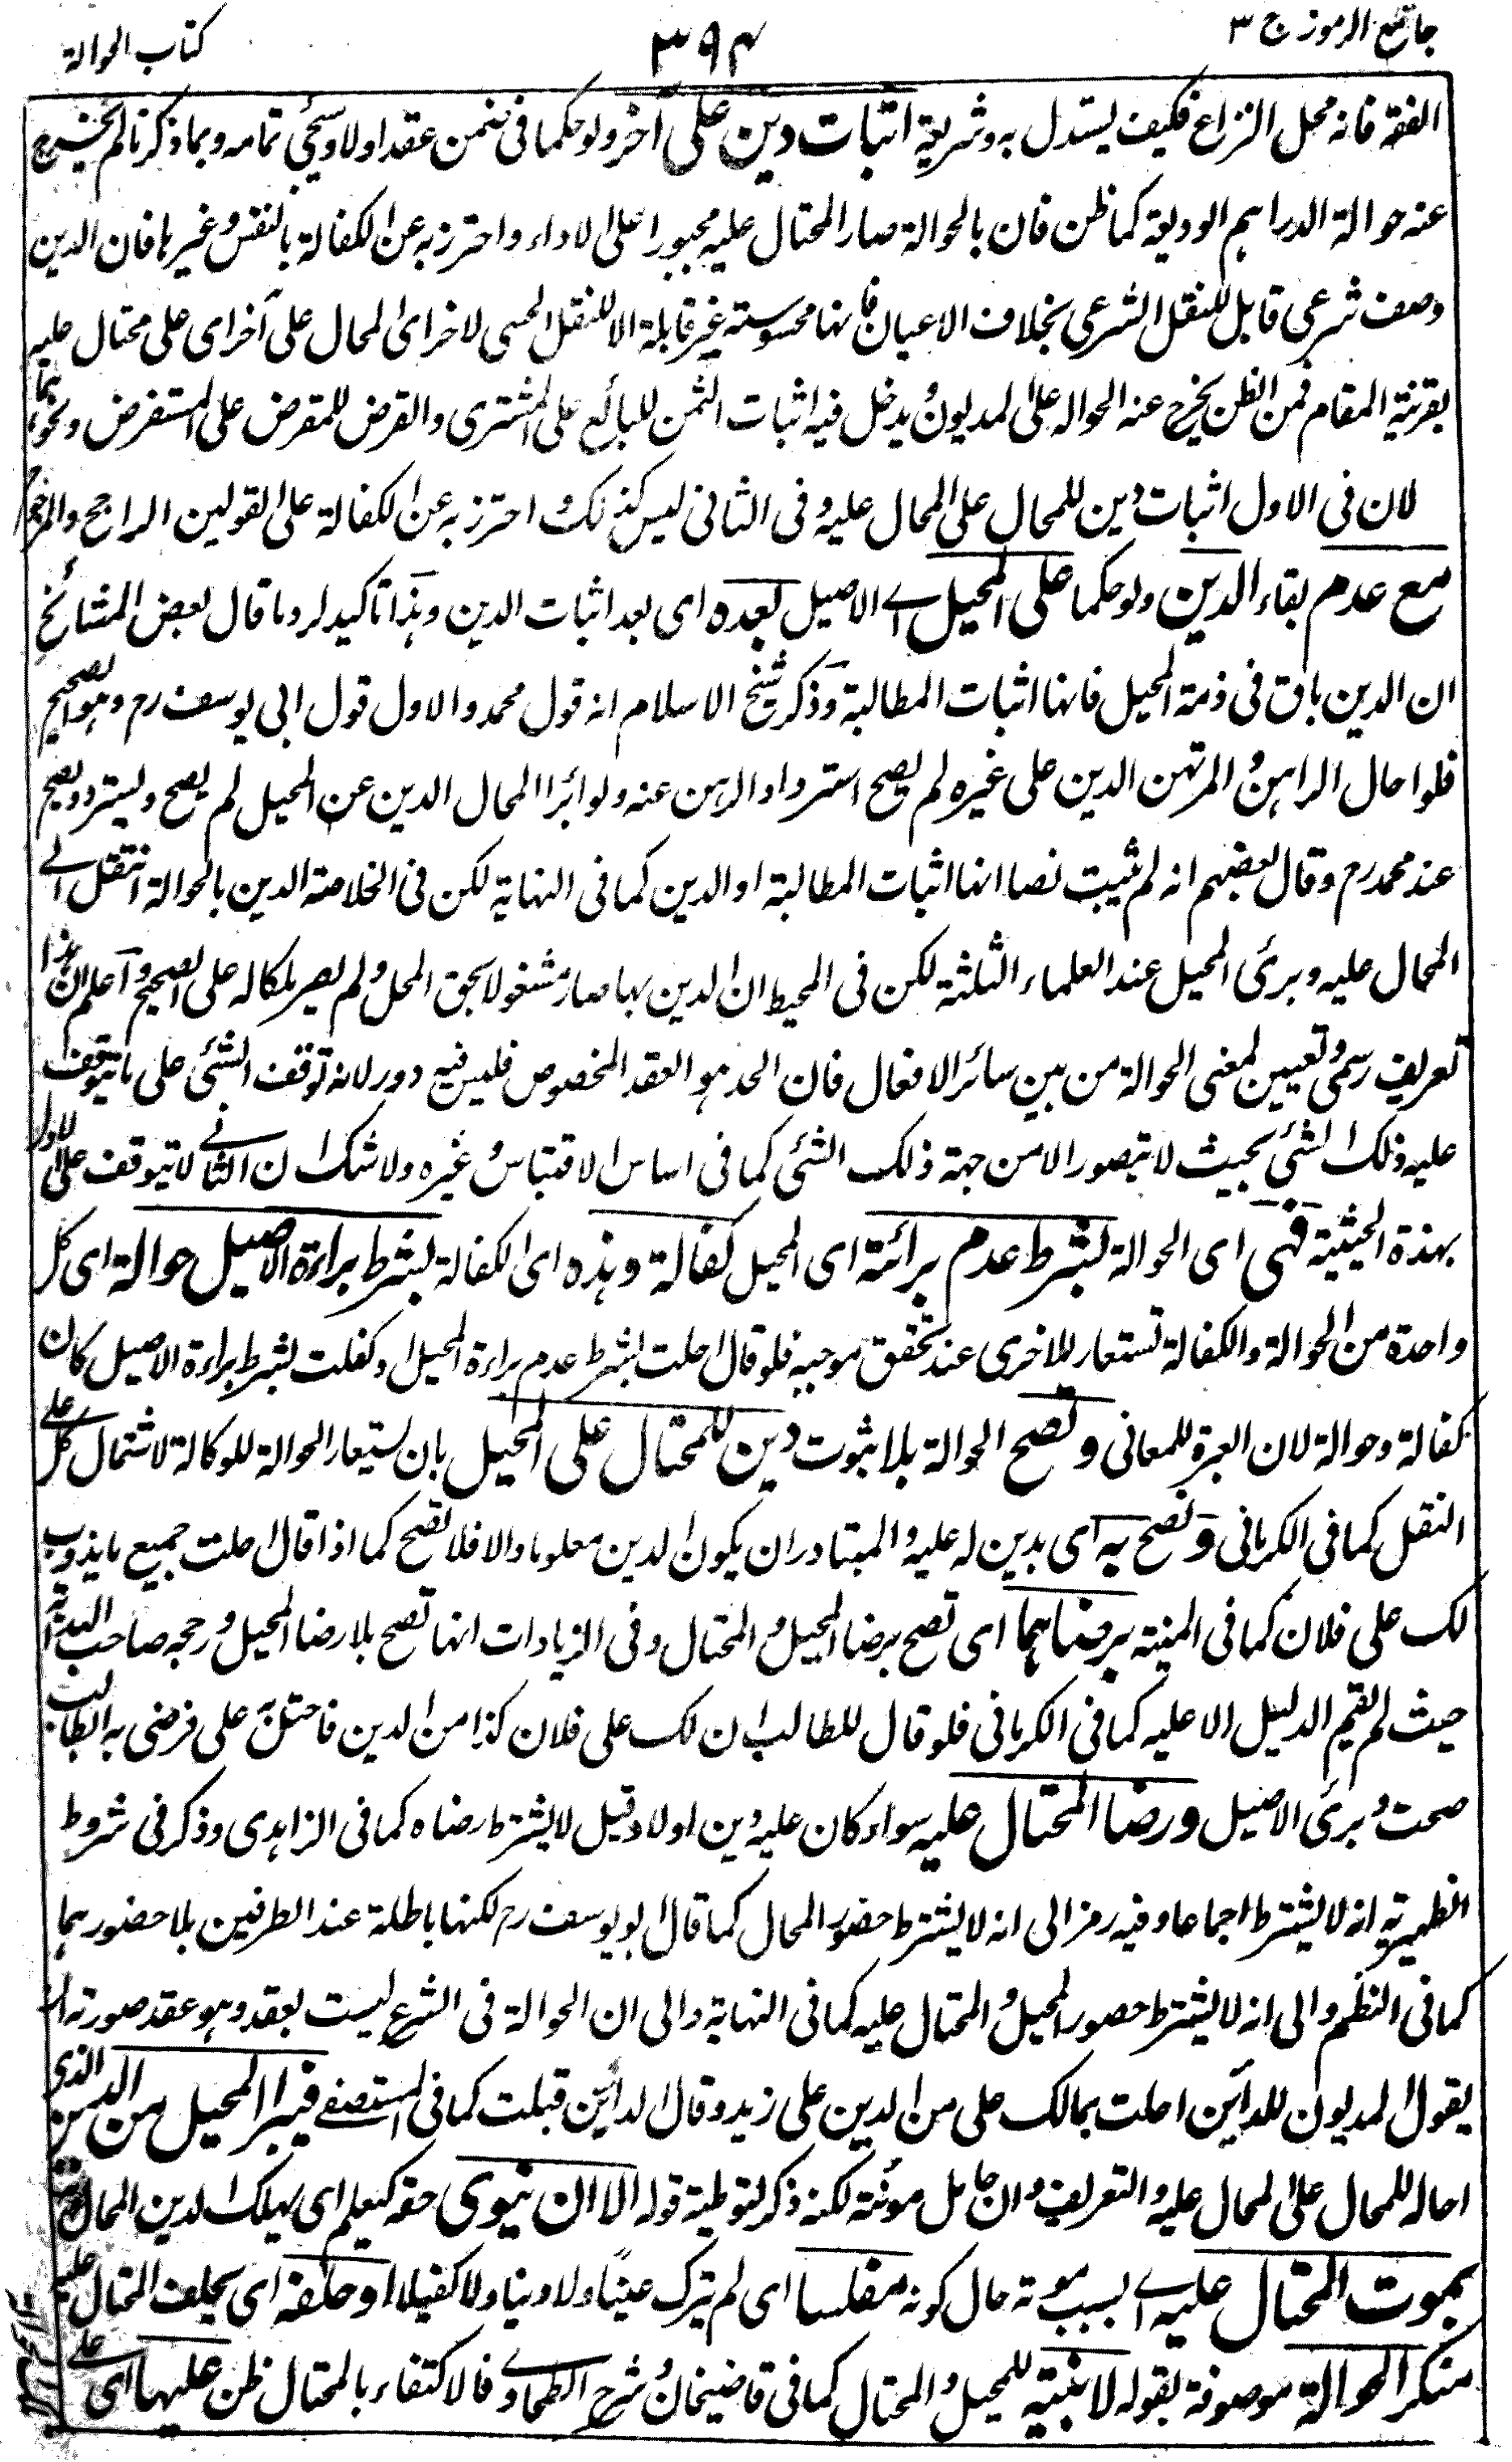 جامع الرموز ج ٣
٣٩٤
كتاب الحوالة
الفقه فانه محل النزاع فكيف يستدل به وشريعة اثبات دين على آخر ولو حكما فى ضمن عقد اولا وسيجئ تمامه وبما ذكرنا لم يخرج
عنه حوالة الدراهم الوديعة كما ظن فان بالحوالة صار المحتال عليه مجبورا على الاداء واحترز به عن الكفالة بالنفس وغيرها فان الدين
وصف شرعى قابل للنقل الشرعى بخلاف الاعيان فانها محسوسة غير قابلة الا للنقل الحسى لاخر اى المحال على آخر اى على محتال عليه
بقرينة المقام فمن الظن يخرج عنه الحواله على المديون ويدخل فيه اثبات الثمن للبائع على المشترى والقرض للمقرض على المستقرض ونحوهما
لان فى الاول اثبات دين للمحال على المحال عليه وفى الثانى ليس كذلك واحترز به عن الكفالة على القولين الراجح والمرجوح
مع عدم بقاء الدين ولو حكما على المحيل اے الاصيل بعده اى بعد اثبات الدين وهذا تاكيد لرد ما قال بعض المشائخ
ان الدين باق فى ذمة المحيل فانها اثبات المطالبة وذكر شيخ الاسلام انه قول محمد والاول قول ابى يوسف رح وهو الصحيح
فلو احال الراهن المرتهن الدين على غيره لم يصح استرداد الرهن عنه ولو ابرأ المحال الدين عن المحيل لم يصح ويسترد ويصح
عند محمد رح وقال بعضهم انه لم يثبت نصا انها اثبات المطالبة او الدين كما فى النهاية لكن فى الخلاصة الدين بالحوالة انتقل الے
المحال عليه وبرئ المحيل عند العلماء الثلثة لكن فى المحيط ان الدين بها صار مشغولا بحق المحل ولم يصر ملكا له على الصحيح واعلم ان هذا
تعريف رسمى وتعيين لمعنى الحوالة من بين سائر الافعال فان الحد هو العقد المخصوص فليس فيه دور لانه توقف الشئ على ما يتوقف
عليه ذلك الشئ بحيث لا يتصور الا من جهة ذلك الشئ كما فى اساس الاقتباس وغيره ولا شك ان الثانے لا يتوقف على الاول
بهذة الحيثية فهى اى الحوالة بشرط عدم برائة اى المحيل كفالة وهذه اى الكفالة بشرط براءة الاصيل حوالة اى كل
واحدة من الحوالة والكفالة تستعار للاخرى عند تحقق موجبه فلو قال احلت بشرط عدم براءة المحيل او كفلت بشرط براءة الاصيل كان
كفالة وحوالة لان العبرة للمعانى وتصح الحوالة بلا ثبوت دين للمحتال على المحيل بان يستعار الحوالة للوكالة لاشتمال كل على
النقل كما فى الكرمانى وتصح به اى بدين له عليه والمتبادر ان يكون الدين معلوما والا فلا تصح كما اذا قال احلت جميع ما يذوب
لك على فلان كما فى المنية برضاهما اى تصح برضا المحيل والمحتال وفى الزيادات انها تصح بلا رضا المحيل ورجحه صاحب الهداية
حيث لم يقم الدليل الا عليه كما فى الكرمانى فلو قال للطالب ان لك على فلان كذا من الدين فاحتل به على فرضى به الطالب
صحت وبرئ الاصيل ورضا المحتال عليه سواء كان عليه دين اولا وقيل لا يشترط رضاه كما فى الزاهدى وذكر فى شروط
الظهيرية انه لا يشترط اجماعا وفيه رمز الى انه لا يشترط حضور المحال كما قال ابو يوسف رح لكنها باطلة عند الطرفين بلا حضورهما
كما فى النظم والى انه لا يشترط حضور المحيل والمحتال عليه كما فى النهاية والى ان الحوالة فى الشرع ليست بعقد وهو عقد صورته ان
يقول المديون للدائن احلت بمالك على من الدين على زيد وقال الدائن قبلت كما فى المستصفے فيبرأ المحيل من الدين الذى
احاله للمحال على المحال عليه والتعريف وان حامل مونته لكنه ذكر لتوطية قوله الا ان يتوى حقه كيعلم اى يهلك الدين المحال
بموت المحتال عليه اے بسبب موته حال كونه مفلسا اى لم يترك عينا ولا دينا ولا كفيلا او حلفه اى يحلف المحتال عليه
منكر الحوالة موصوفة بقوله لا بينة للمحيل والمحتال كما فى قاضيخان وشرح الطحاوے فالاكتفاء بالمحتال ظن عليها اى على